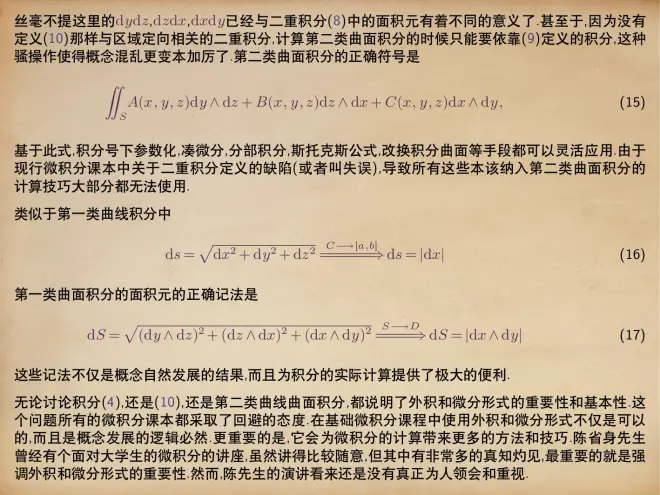 丝毫不提这里的dydz,dzdx,dxdy已经与二重积分(8)中的面积元有着不同的意义了.甚至于,因为没有
定义(10)那样与区域定向相关的二重积分,计算第二类曲面积分的时候只能要依靠(9)定义的积分,这种
骚操作使得概念混乱更变本加厉了.第二类曲面积分的正确符号是
∬_S A(x, y, z)dy∧dz + B(x, y, z)dz∧dx + C(x, y, z)dx∧dy, (15)
基于此式,积分号下参数化,凑微分,分部积分,斯托克斯公式,改换积分曲面等手段都可以灵活应用.由于
现行微积分课本中关于二重积分定义的缺陷(或者叫失误),导致所有这些本该纳入第二类曲面积分的
计算技巧大部分都无法使用.
类似于第一类曲线积分中
ds = √(dx² + dy² + dz²) ⟹(C⟶[a,b]) ds = |dx| (16)
第一类曲面积分的面积元的正确记法是
dS = √((dy∧dz)² + (dz∧dx)² + (dx∧dy)²) ⟹(S⟶D) dS = |dx∧dy| (17)
这些记法不仅是概念自然发展的结果,而且为积分的实际计算提供了极大的便利.
无论讨论积分(4),还是(10),还是第二类曲线曲面积分,都说明了外积和微分形式的重要性和基本性.这
个问题所有的微积分课本都采取了回避的态度.在基础微积分课程中使用外积和微分形式不仅是可以
的,而且是概念发展的逻辑必然.更重要的是,它会为微积分的计算带来更多的方法和技巧.陈省身先生
曾经有个面对大学生的微积分的讲座,虽然讲得比较随意,但其中有非常多的真知灼见,最重要的就是强
调外积和微分形式的重要性.然而,陈先生的演讲看来还是没有真正为人领会和重视.